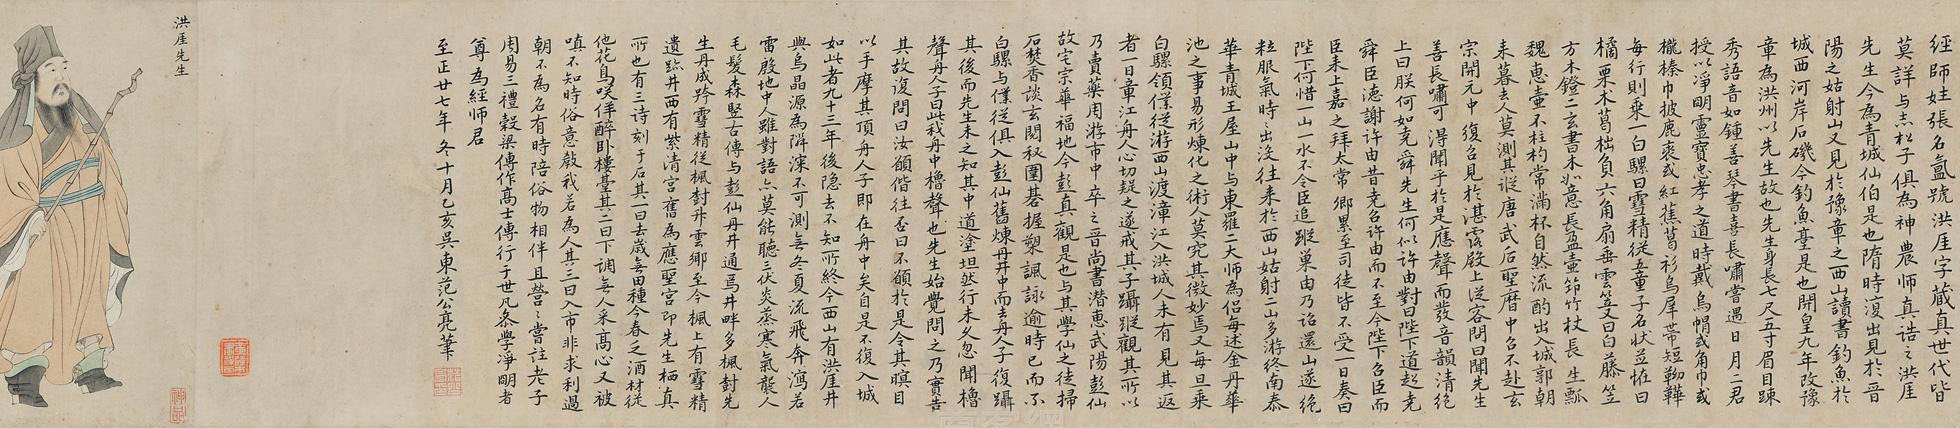 經師姓張名氳號洪厓字藏真世代皆
莫詳与赤松子俱為神農師真誥之洪厓
先生今為青城仙伯是也隋時復出見於晉
陽之姑射山又見於豫章之西山讀書釣魚於
城西河岸石磯今釣魚臺是也開皇九年改豫
章為洪州以先生故也先生身長七尺五寸眉目踈
秀語音如鍾善琴書喜長嘯嘗遇日月二君
授以淨明靈寶忠孝之道時戴烏帽或角巾或
櫳榛巾披鹿裘或紅蕉葛衫烏犀帶短靿鞾
每行則乘一白騾曰雪精從五童子名狀並在曰
橘栗木葛拙負六角扇垂雲笠又曰白藤笠
方木鐙二玄書木如意長盈壺笻竹杖長生瓢
魏惠壺不柱杓常滿杯自然流酌出入城郭朝
来暮去人莫測其蹤唐武后聖曆中召不赴玄
宗開元中復召見於湛露殿上從容問曰聞先生
善長嘯可得聞乎於是應聲而發音韻清絕
上曰朕何如堯舜先生何似許由對曰陛下道超堯
舜臣德謝許由昔堯召許由而不至今陛下召臣而
臣来上嘉之拜太常卿累至司徒皆不受一日奏曰
陛下何惜一山一水不令臣追蹤巢由乃詔還山遂絕
粒服氣時時出没往来於西山姑射二山多游終南泰
華青城王屋山中与東羅二大師為侣每述金丹華
池之事易形煉化之術人莫究其微妙焉又每旦乘
白騾領僕從游西山渡漳江入洪城人未有見其返
者一日章江舟人心切疑之遂戒其子躡蹤觀其所以
乃賣藥周游市中卒之晉尚書潜惠武陽彭仙
故宅宗華福地今彭真觀是也与其學仙之徒掃
石焚香談玄閱秘圍碁握槊諷詠逾時已而不
白騾与僕從俱入彭仙舊煉丹井中而去舟人子復躡
其後而先生未之知其中道塗坦然行未久忽聞櫓
聲舟人子曰此我舟中櫓聲也先生始覺問之乃實告
其故復問曰汝願偕往否曰不願於是令其瞑目
以手摩其頂舟人子即在舟中矣自是不復入城
如此者九十三年後隱去不知所終今西山有洪厓井
與烏晶源為隣深不可測無冬夏流飛奔瀉若
雷殷地中人雖對語亦莫能聽三伏炎蒸寒氣襲人
毛髮森竪古傳与彭仙丹井通焉井畔多楓樹先
生丹成跨雪精從楓樹升雲鄉至今楓上有雪精
遺跡井西有紫清宮舊為應聖宮即先生栖真
所也有三詩刻于石其一曰去歲無田種今春乏酒材從
他花鳥咲佯醉卧樓臺其二曰下調無人采高心又被
嗔不知時俗意教我若為人其三曰入市非求利過
朝不為名有時陪俗物相伴且營營嘗註老子
周易三禮穀梁傳作高士傳行于世凡忝學淨明者
尊為經師君
至正廿七年冬十月乙亥吳東范公亮筆
洪厓先生